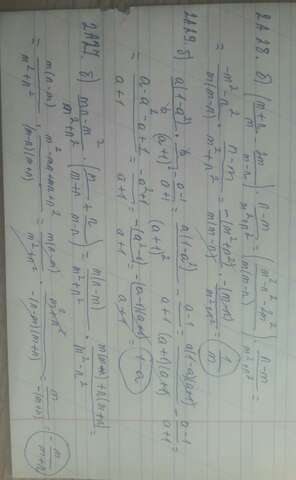 2А28. б) ((m+n)/m − 2m/(m−n)) · (n−m)/(m²+n²) = ((m²−n²−2m²)/(m(m−n))) · (n−m)/(m²+n²) =
= (−m²−n²)/(m(m−n)) · (n−m)/(m²+n²) = −(m²+n²)/(m(m−n)) · −(m−n)/(m²+n²) = 1/m
2А29. б) a(1−a²)/b · b/(a+1)² − (a−1)/(a+1) = a(1−a²)/(a+1)² − (a−1)/(a+1) = a(1−a)(a+1)/((a+1)(a+1)) − (a−1)/(a+1) =
= (a−a²−a+1)/(a+1) = (−a²+1)/(a+1) = −(a²−1)/(a+1) = −(a−1)(a+1)/(a+1) = 1−a
2А27. б) (mn−m²)/(m²+n²) · (m/(m+n) + n/(m−n)) = m(n−m)/(m²+n²) · (m(m−n)+n(m+n))/(m²−n²) =
= m(n−m)/(m²+n²) · (m²−mn+mn+n²)/((m−n)(m+n)) = m(n−m)/(m²+n²) · (m²+n²)/(−(n−m)(m+n)) = m/(−(m+n)) = −m/(m+n)